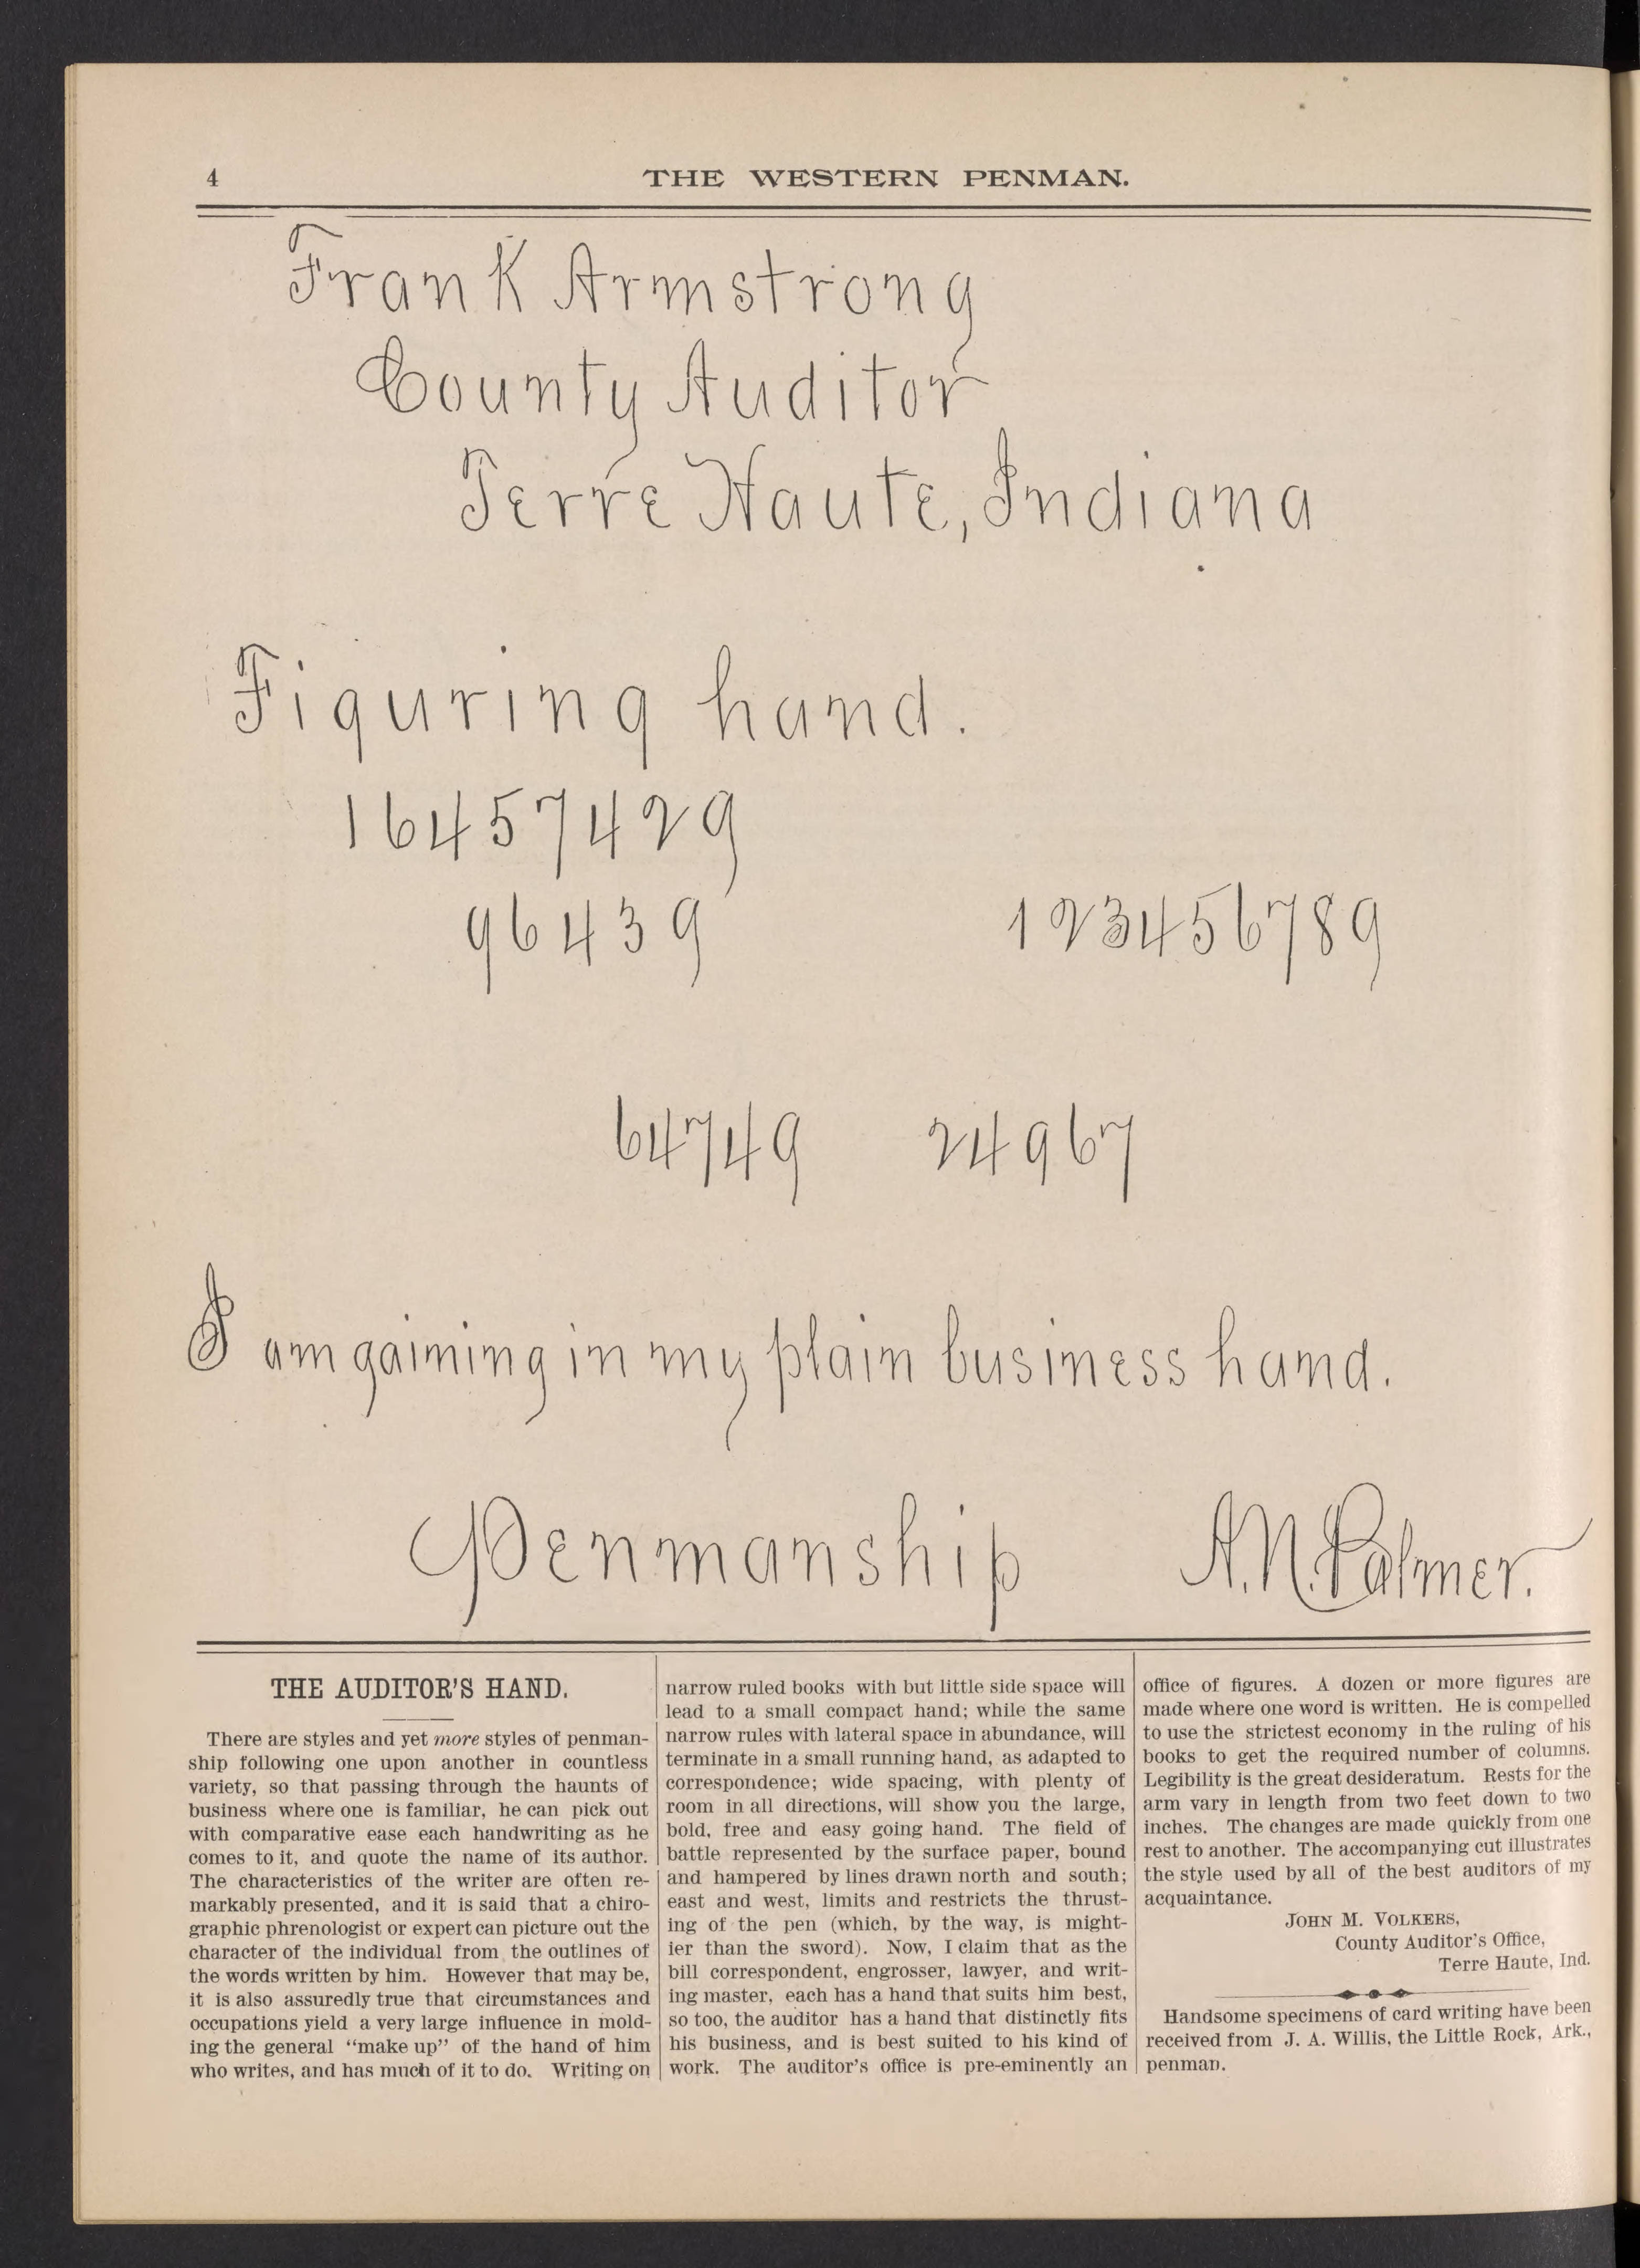 4
THE WESTERN PENMAN.
Frank Armstrong
County Auditor
Terre Haute, Indiana
Figuring hand.
16457429
96439
123456789
64749
24967
I am gaining in my plain business hand.
Penmanship
A. N. Palmer.
THE AUDITOR'S HAND.
There are styles and yet more styles of penman-
ship following one upon another in countless
variety, so that passing through the haunts of
business where one is familiar, he can pick out
with comparative ease each handwriting as he
comes to it, and quote the name of its author.
The characteristics of the writer are often re-
markably presented, and it is said that a chiro-
graphic phrenologist or expert can picture out the
character of the individual from the outlines of
the words written by him. However that may be,
it is also assuredly true that circumstances and
occupations yield a very large influence in mold-
ing the general "make up" of the hand of him
who writes, and has much of it to do. Writing on
narrow ruled books with but little side space will
lead to a small compact hand; while the same
narrow rules with lateral space in abundance, will
terminate in a small running hand, as adapted to
correspondence; wide spacing, with plenty of
room in all directions, will show you the large,
bold, free and easy going hand. The field of
battle represented by the surface paper, bound
and hampered by lines drawn north and south;
east and west, limits and restricts the thrust-
ing of the pen (which, by the way, is might-
ier than the sword). Now, I claim that as the
bill correspondent, engrosser, lawyer, and writ-
ing master, each has a hand that suits him best,
so too, the auditor has a hand that distinctly fits
his business, and is best suited to his kind of
work. The auditor's office is pre-eminently an
office of figures. A dozen or more figures are
made where one word is written. He is compelled
to use the strictest economy in the ruling of his
books to get the required number of columns.
Legibility is the great desideratum. Rests for the
arm vary in length from two feet down to two
inches. The changes are made quickly from one
rest to another. The accompanying cut illustrates
the style used by all of the best auditors of my
acquaintance.
JOHN M. VOLKERS,
County Auditor's Office,
Terre Haute, Ind.
Handsome specimens of card writing have been
received from J. A. Willis, the Little Rock, Ark.,
penman.